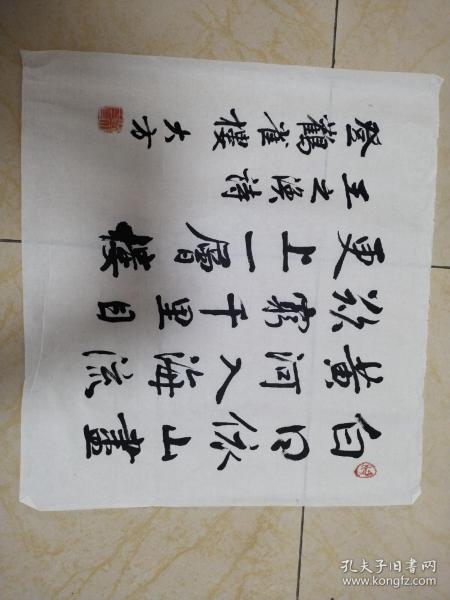 白日依山盡
黄河入海流
欲窮千里目
更上一層樓
王之涣詩
登鸛雀樓 大方
孔夫子旧书网
www.kongfz.com